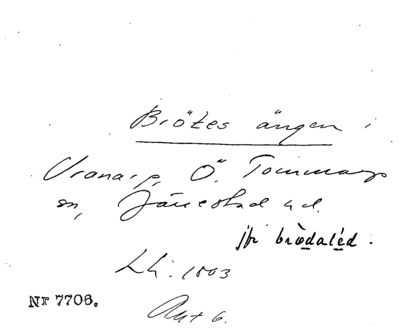 Brötes ängen i
Vranarp, Ö. Tommarps
sn, Järrestad hd.
jfr brödaléd.
LH. 1803
Akt 6.
Nr 7706.